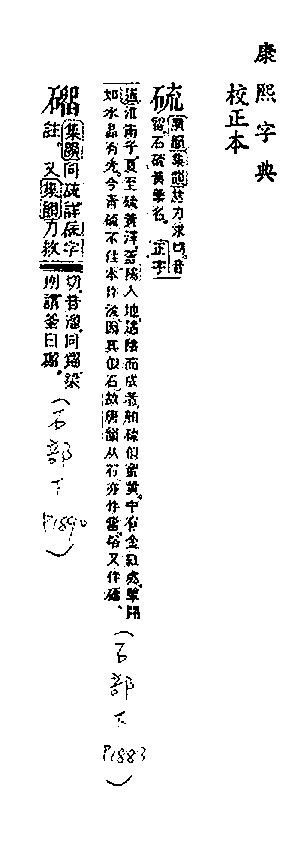 康熙字典
校正本
硫
廣韻集韻𠀤力求切音
留石硫黃藥名 正字
通淮南子夏至硫黃澤 陽人地遇陰而成者舶硫似蜜黃中有金紅處擊開
如水晶有光今青硫不佳本作流因其似石故唐韻从石亦作 俗又作磂
(石部下 P1883)
磂
集韻同硫詳硫字
註 又集韻力救
切音溜同塯梁
所謂釜曰
(石部下 P1890)